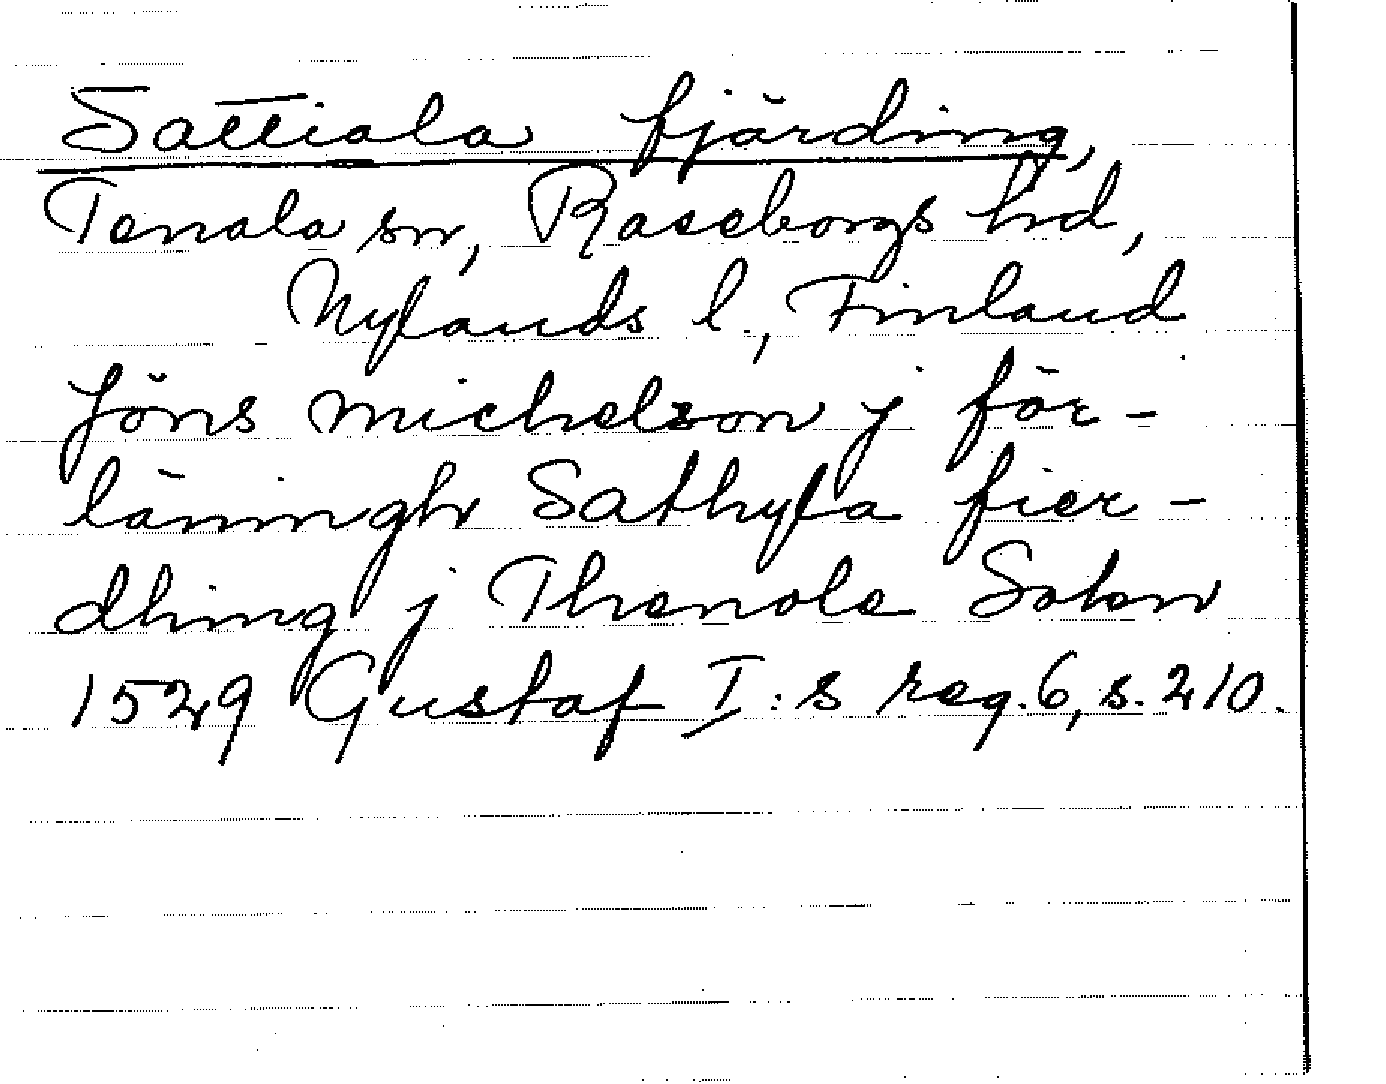 Sattiala fjärding,
Tenala sn, Raseborgs hd,
Nylands l., Finland
Jöns michelson j för-
läningh Sathyla fier-
dhing j Thenola Soken
1529 Gustaf I:s reg. 6, s. 210.